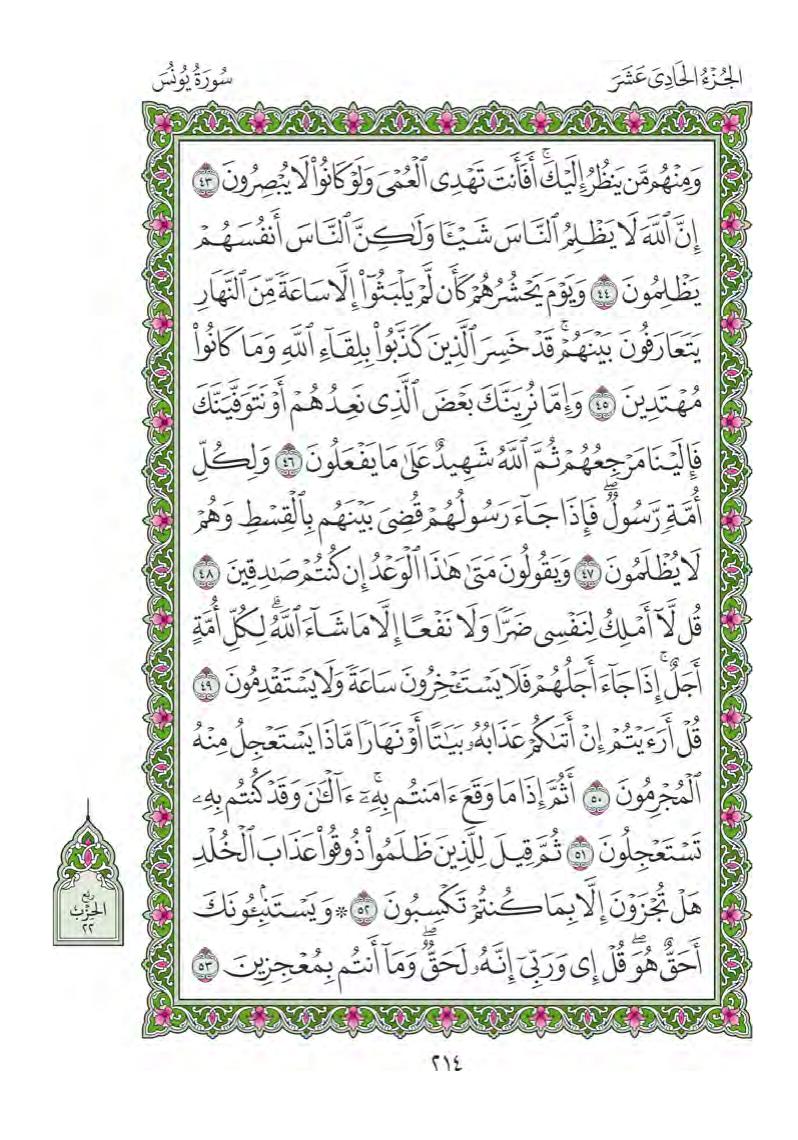 الجُزْءُ الحَادِي عَشَرَ
سُورَةُ يُونُسَ
وَمِنْهُم مَّن يَنظُرُ إِلَيْكَۚ أَفَأَنتَ تَهْدِى ٱلْعُمْىَ وَلَوْ كَانُوا۟ لَا يُبْصِرُونَ ٤٣
إِنَّ ٱللَّهَ لَا يَظْلِمُ ٱلنَّاسَ شَيْـًٔا وَلَـٰكِنَّ ٱلنَّاسَ أَنفُسَهُمْ
يَظْلِمُونَ ٤٤ وَيَوْمَ يَحْشُرُهُمْ كَأَن لَّمْ يَلْبَثُوٓا۟ إِلَّا سَاعَةً مِّنَ ٱلنَّهَارِ
يَتَعَارَفُونَ بَيْنَهُمْۚ قَدْ خَسِرَ ٱلَّذِينَ كَذَّبُوا۟ بِلِقَآءِ ٱللَّهِ وَمَا كَانُوا۟
مُهْتَدِينَ ٤٥ وَإِمَّا نُرِيَنَّكَ بَعْضَ ٱلَّذِى نَعِدُهُمْ أَوْ نَتَوَفَّيَنَّكَ
فَإِلَيْنَا مَرْجِعُهُمْ ثُمَّ ٱللَّهُ شَهِيدٌ عَلَىٰ مَا يَفْعَلُونَ ٤٦ وَلِكُلِّ
أُمَّةٍ رَّسُولٌۖ فَإِذَا جَآءَ رَسُولُهُمْ قُضِىَ بَيْنَهُم بِٱلْقِسْطِ وَهُمْ
لَا يُظْلَمُونَ ٤٧ وَيَقُولُونَ مَتَىٰ هَـٰذَا ٱلْوَعْدُ إِن كُنتُمْ صَـٰدِقِينَ ٤٨
قُل لَّآ أَمْلِكُ لِنَفْسِى ضَرًّا وَلَا نَفْعًا إِلَّا مَا شَآءَ ٱللَّهُۗ لِكُلِّ أُمَّةٍ
أَجَلٌۚ إِذَا جَآءَ أَجَلُهُمْ فَلَا يَسْتَـْٔخِرُونَ سَاعَةً وَلَا يَسْتَقْدِمُونَ ٤٩
قُلْ أَرَءَيْتُمْ إِنْ أَتَىٰكُمْ عَذَابُهُۥ بَيَـٰتًا أَوْ نَهَارًا مَّاذَا يَسْتَعْجِلُ مِنْهُ
ٱلْمُجْرِمُونَ ٥٠ أَثُمَّ إِذَا مَا وَقَعَ ءَامَنتُم بِهِۦٓۚ ءَآلْـَٔـٰنَ وَقَدْ كُنتُم بِهِۦ
تَسْتَعْجِلُونَ ٥١ ثُمَّ قِيلَ لِلَّذِينَ ظَلَمُوا۟ ذُوقُوا۟ عَذَابَ ٱلْخُلْدِ
هَلْ تُجْزَوْنَ إِلَّا بِمَا كُنتُمْ تَكْسِبُونَ ٥٢ * وَيَسْتَنۢبِـُٔونَكَ
أَحَقٌّ هُوَۖ قُلْ إِى وَرَبِّىٓ إِنَّهُۥ لَحَقٌّۖ وَمَآ أَنتُم بِمُعْجِزِينَ ٥٣
رُبْع
الحِزْب
٢٢
٢١٤